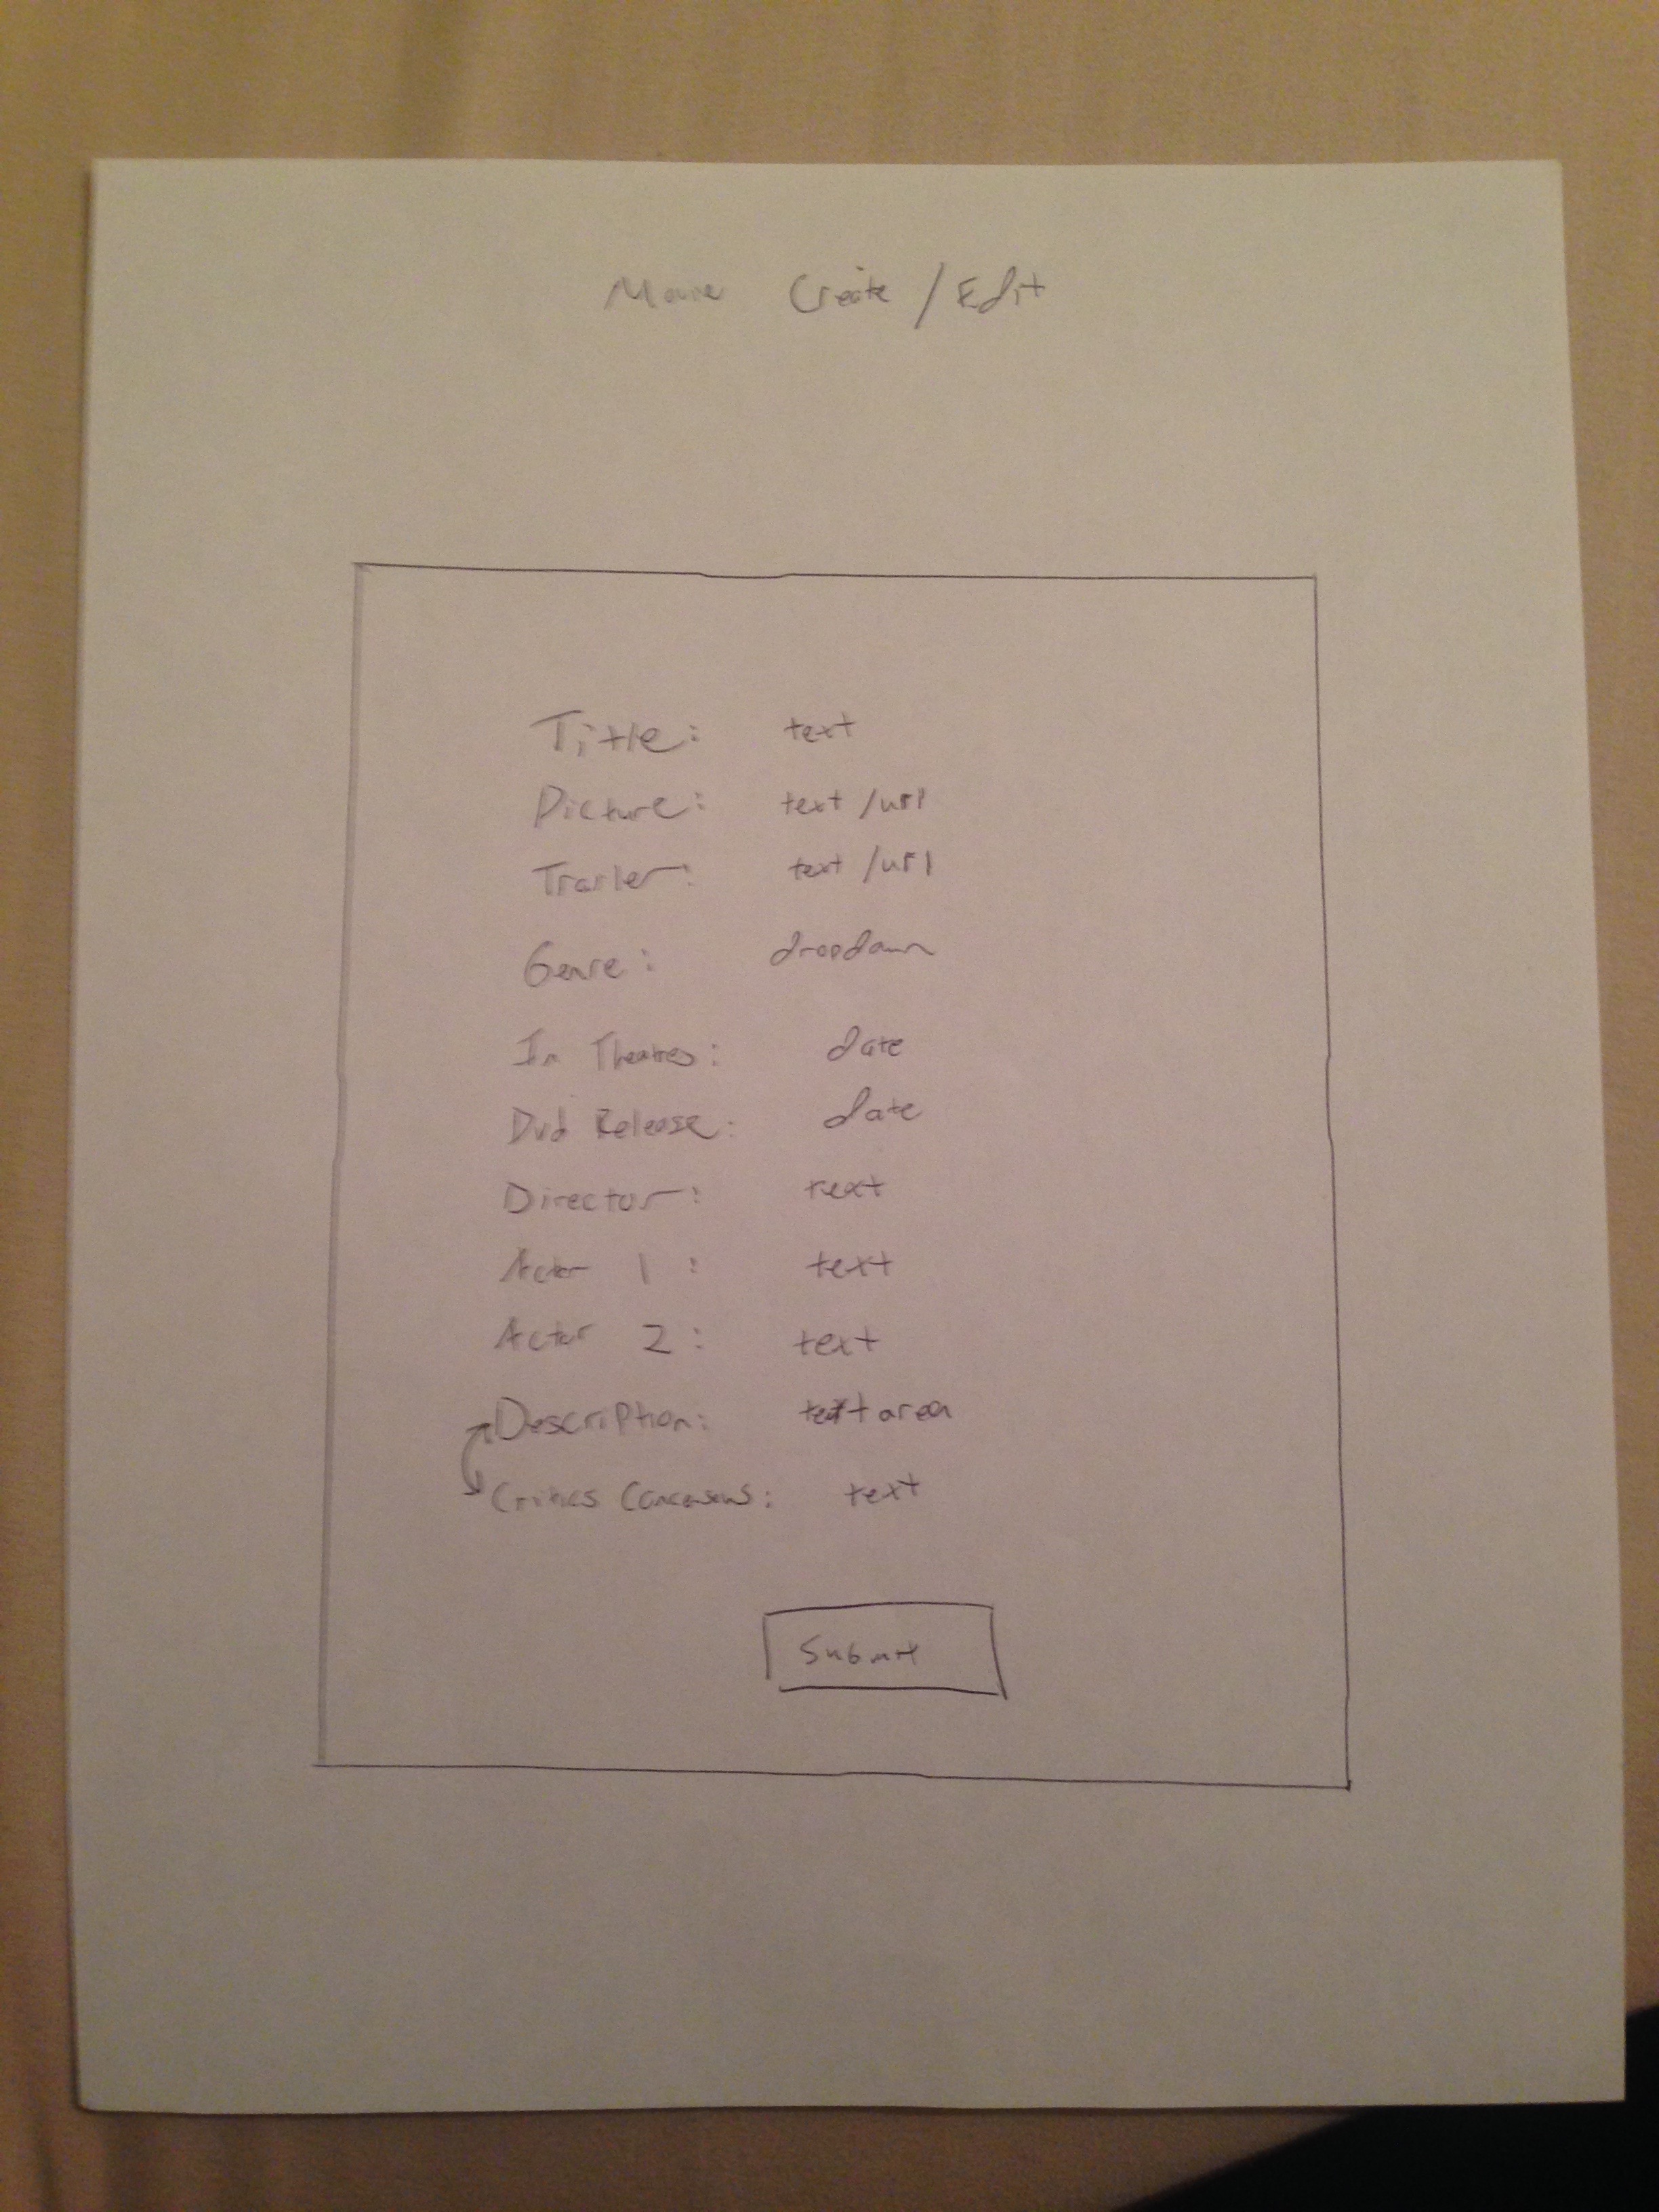 Movie Create / Edit
Title: text
Picture: text /url
Trailer: text /url
Genre: dropdown
In Theatres: date
Dvd Release: date
Director: text
Actor 1: text
Actor 2: text
Description: textarea
Critics Concensus: text
Submit